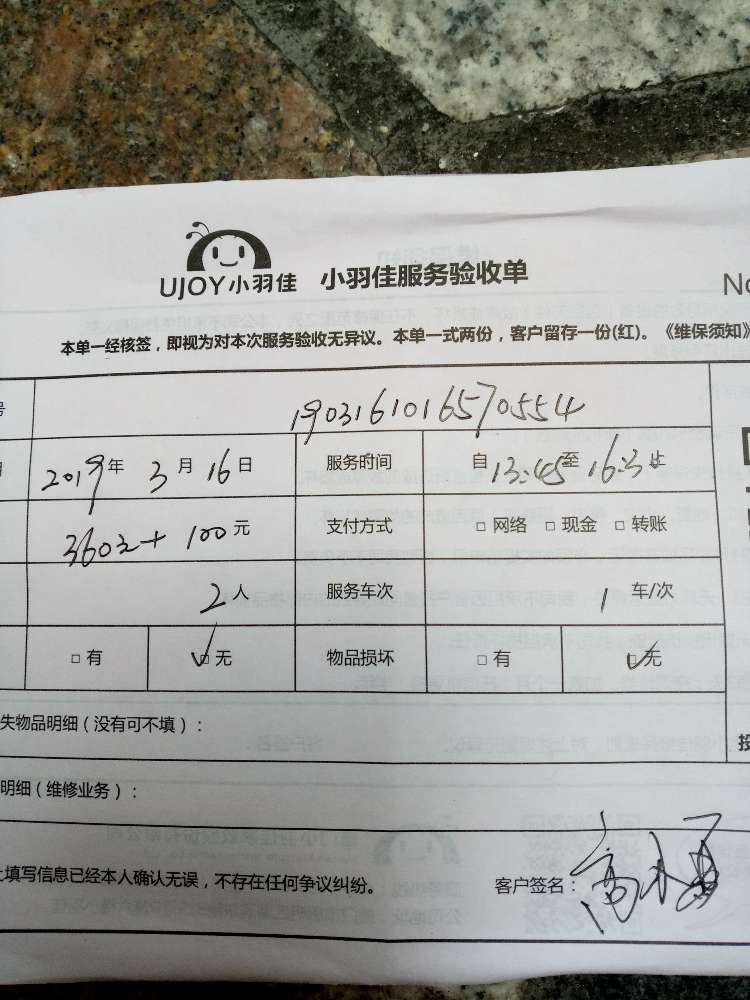 UJOY小羽佳 小羽佳服务验收单 No
本单一经核签，即视为对本次服务验收无异议。本单一式两份，客户留存一份(红)。《维保须知》
号 1903161016570554
2019年 3月 16日 服务时间 自 13:45 至 16:3 止
360元+ 100元 支付方式 □ 网络 □ 现金 □ 转账
2人 服务车次 1 车/次
□ 有 □ 无 物品损坏 □ 有 □ 无
失物品明细（没有可不填）：
明细（维修业务）：
上填写信息已经本人确认无误，不存在任何争议纠纷。 客户签名：